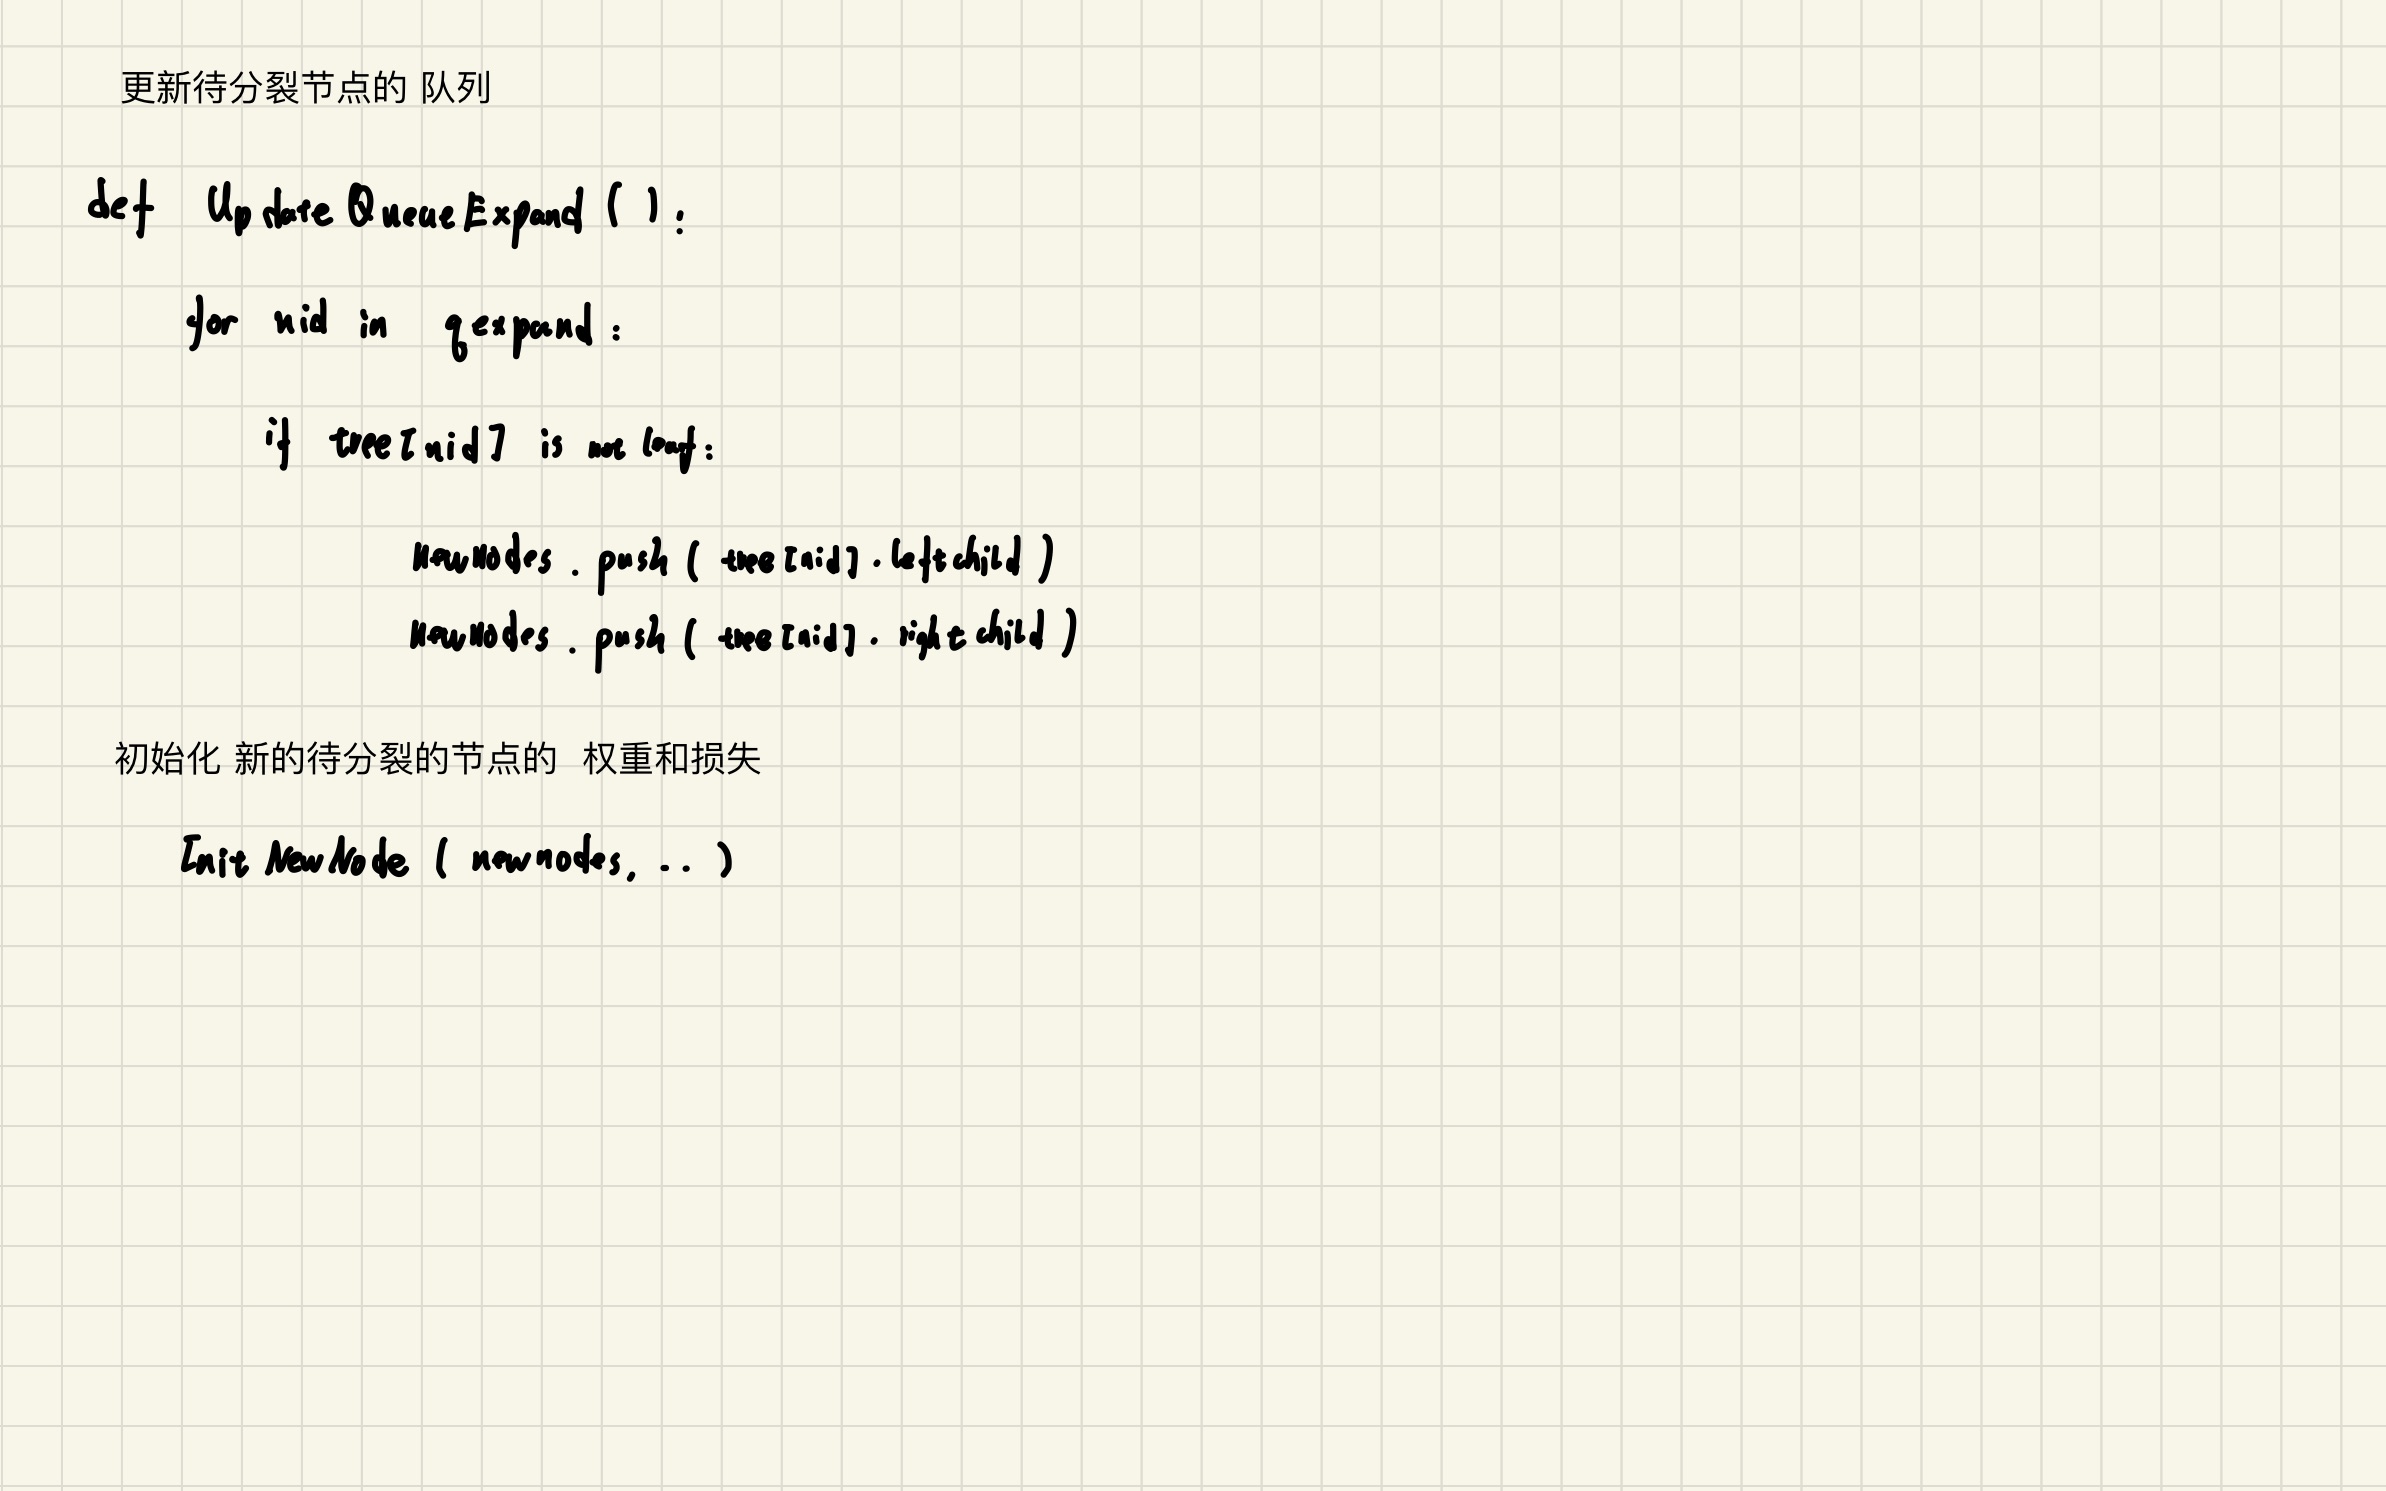 更新待分裂节点的 队列
def UpdateQueueExpand():
for nid in qexpand:
if tree[nid] is not leaf:
newnodes.push(tree[nid].leftchild)
newnodes.push(tree[nid].rightchild)
初始化 新的待分裂的节点的 权重和损失
InitNewNode(newnodes, ..)